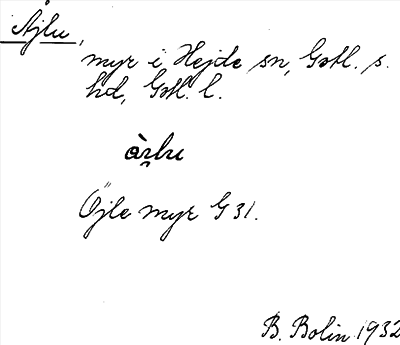 Åjlu,
myr i Hejde sn, Gotl. s.
hd, Gotl. l.
Öjle myr G 31.
B. Bolin 1932